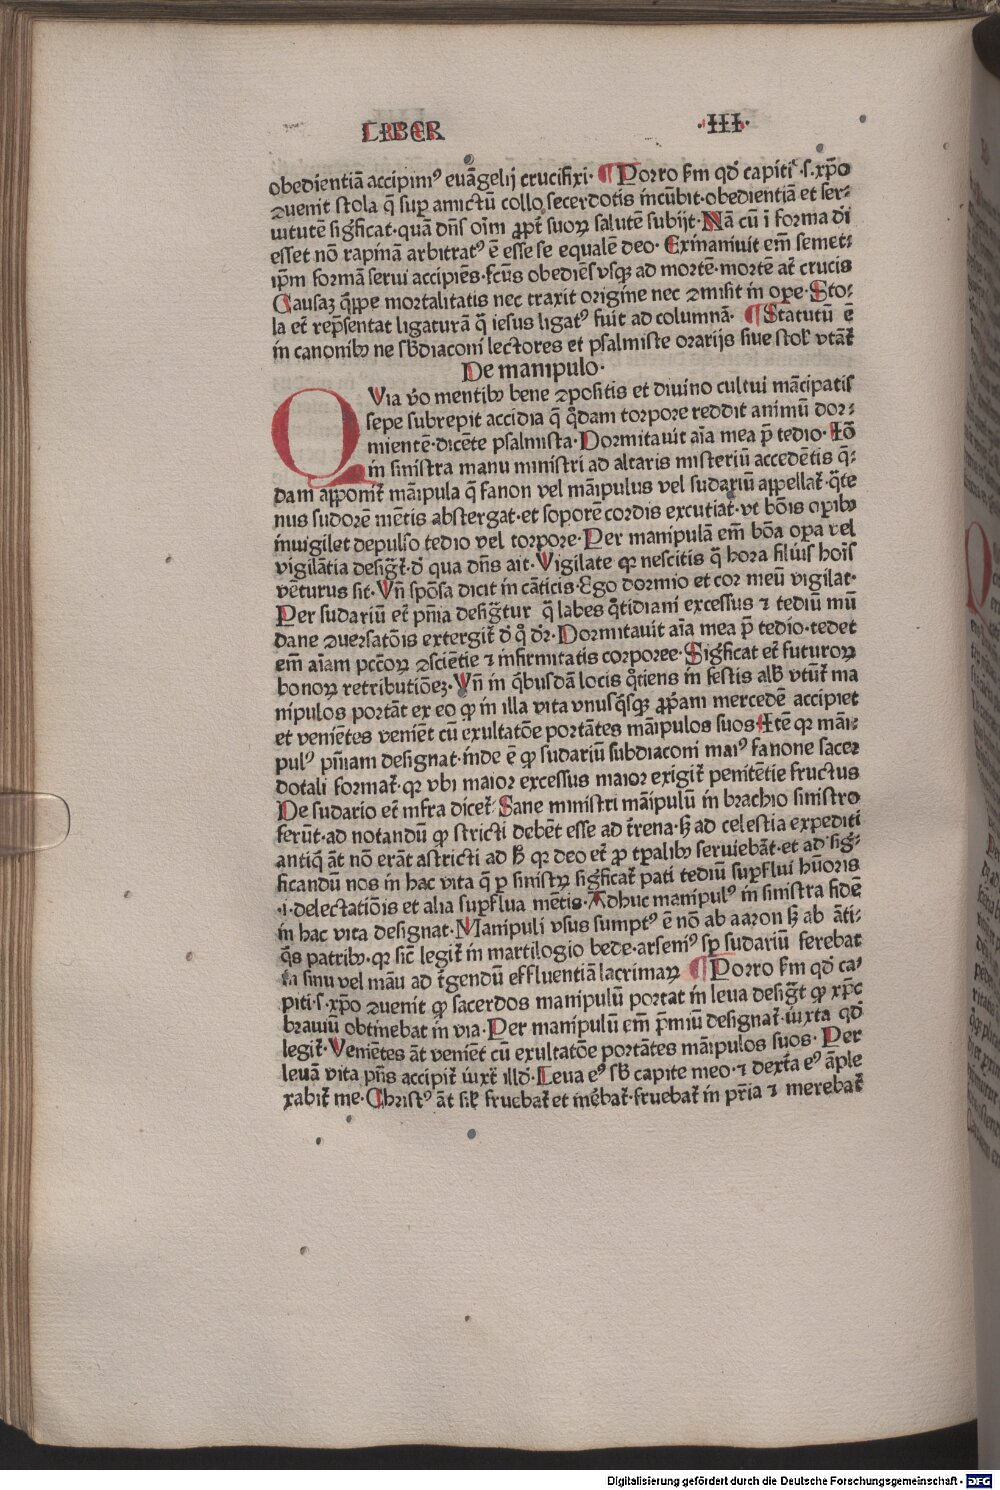 LIBER ·III·
obedientiā accipimꝰ euāgelij crucifixi· ¶ Porro ẜm qđ capiti ·s·xp̄o
ꝯuenit stola q̄ suꝑ amictū collo secerdotis incūbit·obedientiā et ser⸗
uitutē sigficat·quā dn̄s oīm ꝓpt̄ suoꝝ salutē subijt·Nā cū ī forma dī
esset nō rapinā arbitratꝰ ē esse se equalē deo· Exinaniuit em̄ semet⸗
ip̄m formā serui accipiēs·fcūs obediēs vsqꝫ ad mortē·mortē at̄ crucis
Causaꝫ q̄ippe mortalitatis nec traxit origine nec ꝯmisit in oꝑe·Sto⸗
la et̄ rep̄sentat ligaturā q̄ iesus ligatꝰ fuit ad columnā· ¶ Statutū ē
in canonibꝰ ne sb̄diaconi lectores et psalmiste orarijs siue stoł vtāt᷑
De manipulo·
QVia v̄o mentibꝰ bene ꝯpositis et diuino cultui mācipatis
sepe subrepit accidia q̄ q̄dam torpore reddit animū dor⸗
mientē·dicēte psalmista·Dormitauit aīa mea p̄ tedio·Iō
in sinistra manu ministri ad altaris misteriū accedētis q̄⸗
dam apponit᷑ māipula q̄ fanon vel māipulus vel sudariū appellat᷑·q̄te
nus sudorē mētis abstergat·et soporē cordis excutiat·vt bōis oꝑibꝰ
inuigilet depulso tedio vel torpore·Per manipulā em̄ bōa oꝑa vel
vigilātia desigt᷑·đ qua dn̄s ait·Vigilate qꝛ nescitis q̄ hora filius hoīs
vēturus sit·Vn̄ spōsa dicit in cāticis·Ego dormio et cor meū vigilat·
Per sudariū et̄ pn̄ia desigtur q̄ labes q̄tidiani excessus ⁊ tediū mū
dane ꝯuersatōis extergit᷑ đ q̊ dr̄·Dormitauit aīa mea p̄ tedio·tedet
em̄ aīam pcc̄oꝝ ꝯsciētie ⁊ infirmitatis corporee·Sigficat et̄ futuroꝝ
bonoꝝ retributiōeꝫ·Vn̄ in q̄busdā locis q̊tiens in festis alb̄ vtūt᷑ ma
nipulos portāt ex eo ꝙ in illa vita vnusq̄sqꝫ ꝓpam mercedē accipiet
et veniētes veniēt cū exultatōe portātes māipulos suos·Itē qꝛ māi⸗
pulꝰ pn̄iam designat·inde ē ꝙ sudariū subdiaconi maiꝰ fanone sacer
dotali format᷑·qꝛ vbi maior excessus maior exigit᷑ penitētie fructus
De sudario et̄ infra dicet᷑·Sane ministri māipulū in brachio sinistro
ferūt·ad notandū ꝙ stricti debēt esse ad t̄rena·ꜩ ad celestia expediti
antiq̄ āt nō erāt astricti ad ħ qꝛ deo et̄ ꝓ tꝑalibꝰ seruiebāt·et ad sig⸗
ficandū nos in hac vita q̄ ꝑ sinistrꝝ sigficat᷑ pati tediū suꝑflui hūoris
·i·delectatiōis et alia suꝑflua mētis·Adhuc manipulꝰ in sinistra fidē
in hac vita designat·Manipuli vsus sumptꝰ ē nō ab aaron ꜩ ab āti⸗
q̄s patribꝰ·qꝛ sic̄ legit᷑ in martilogio bede·arseniꝰ sꝑ sudariū ferebat
in sinu vel māu ad t̄gendū effluentiā lacrimaꝝ ¶ Porro ẜm qđ ca⸗
piti·s·xp̄o ꝯuenit ꝙ sacerdos manipulū portat in leua desigt᷑ ꝙ xp̄c
brauiū obtinebat in via·Per manipulū em̄ p̄miū designat᷑·iuxta qđ
legit᷑·Veniētes āt veniēt cū exultatōe portātes māipulos suos· Per
leuā vita pn̄s accipit᷑ iuxt᷑ illđ·Leua eꝰ sb̄ capite meo·⁊ dext̄a eꝰ āple
xabit᷑ me·Christꝰ āt sił fruebat᷑ et m̄ebat᷑·fruebat᷑ in pr̄ia ⁊ merebat᷑
Digitalisierung gefördert durch die Deutsche Forschungsgemeinschaft - DFG